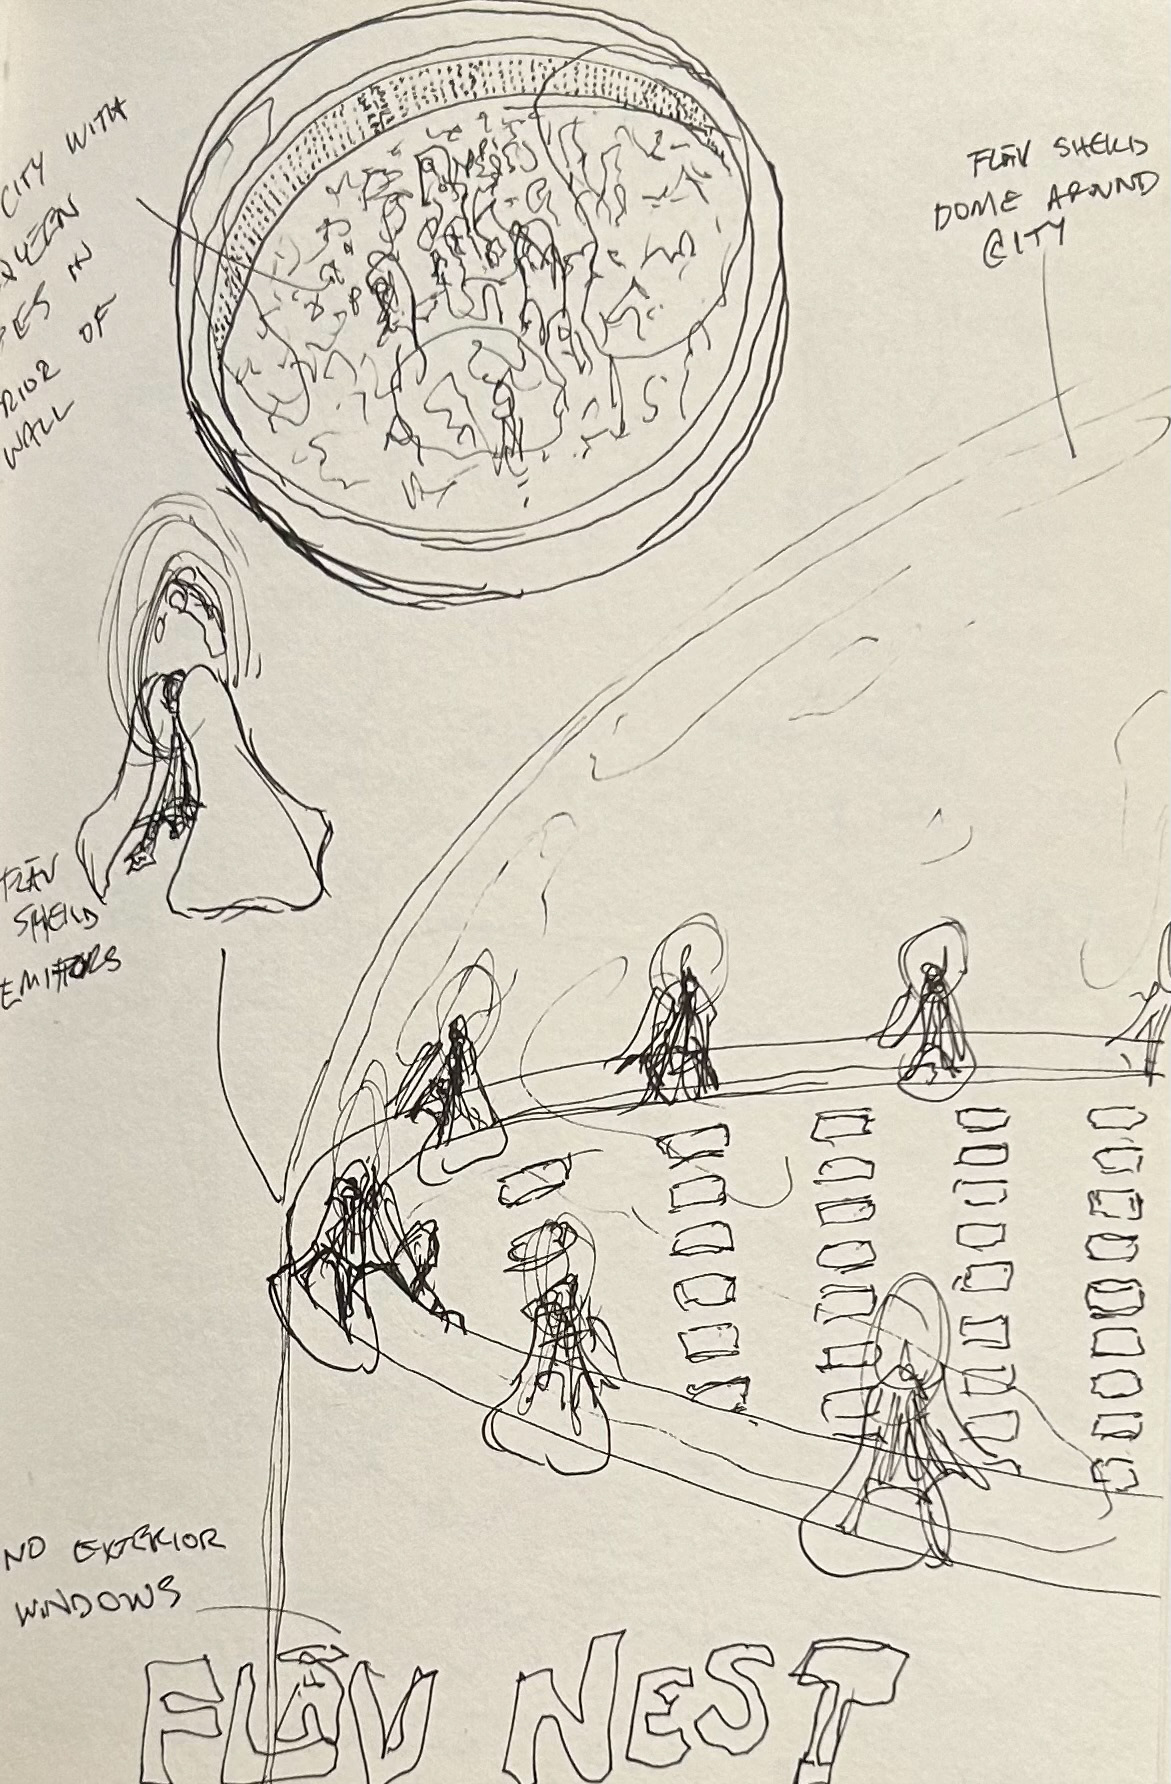 CITY WITH
QUEEN
IN
OF
WALL
FLĀV SHEILD
DOME AROUND
CITY
FLĀV
SHEILD
EMITTORS
NO EXTERIOR
WINDOWS
FLĀV NEST